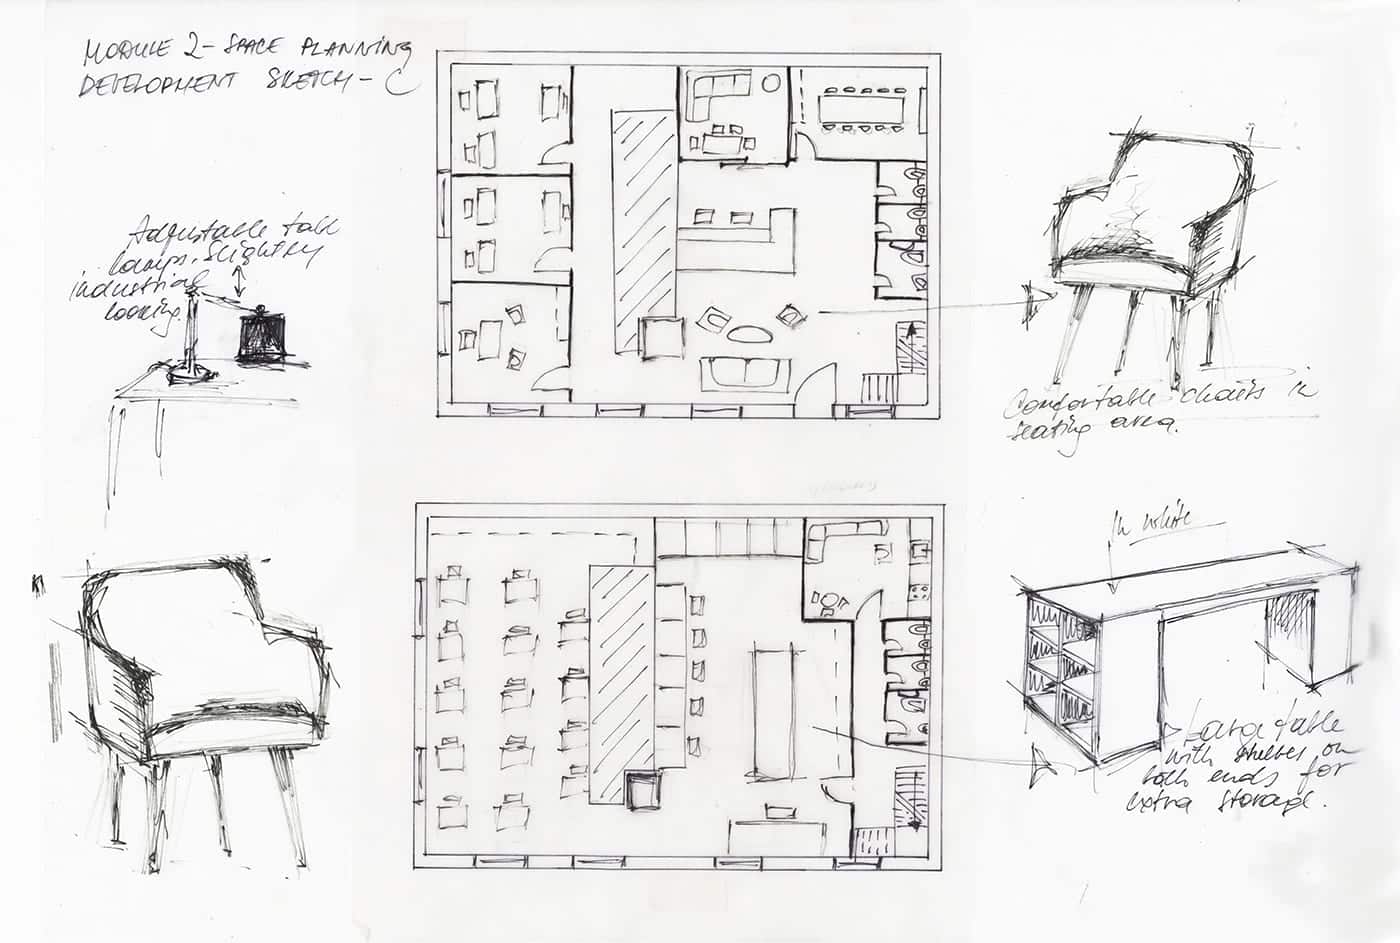 MODULE 2 - SPACE PLANNING
DEVELOPMENT SKETCH - C
Adjustable table
lamps. Slightly
industrial
looking.
Comfortable chairs in
seating area.
In white
table
with shelves on
both ends for
extra storage.